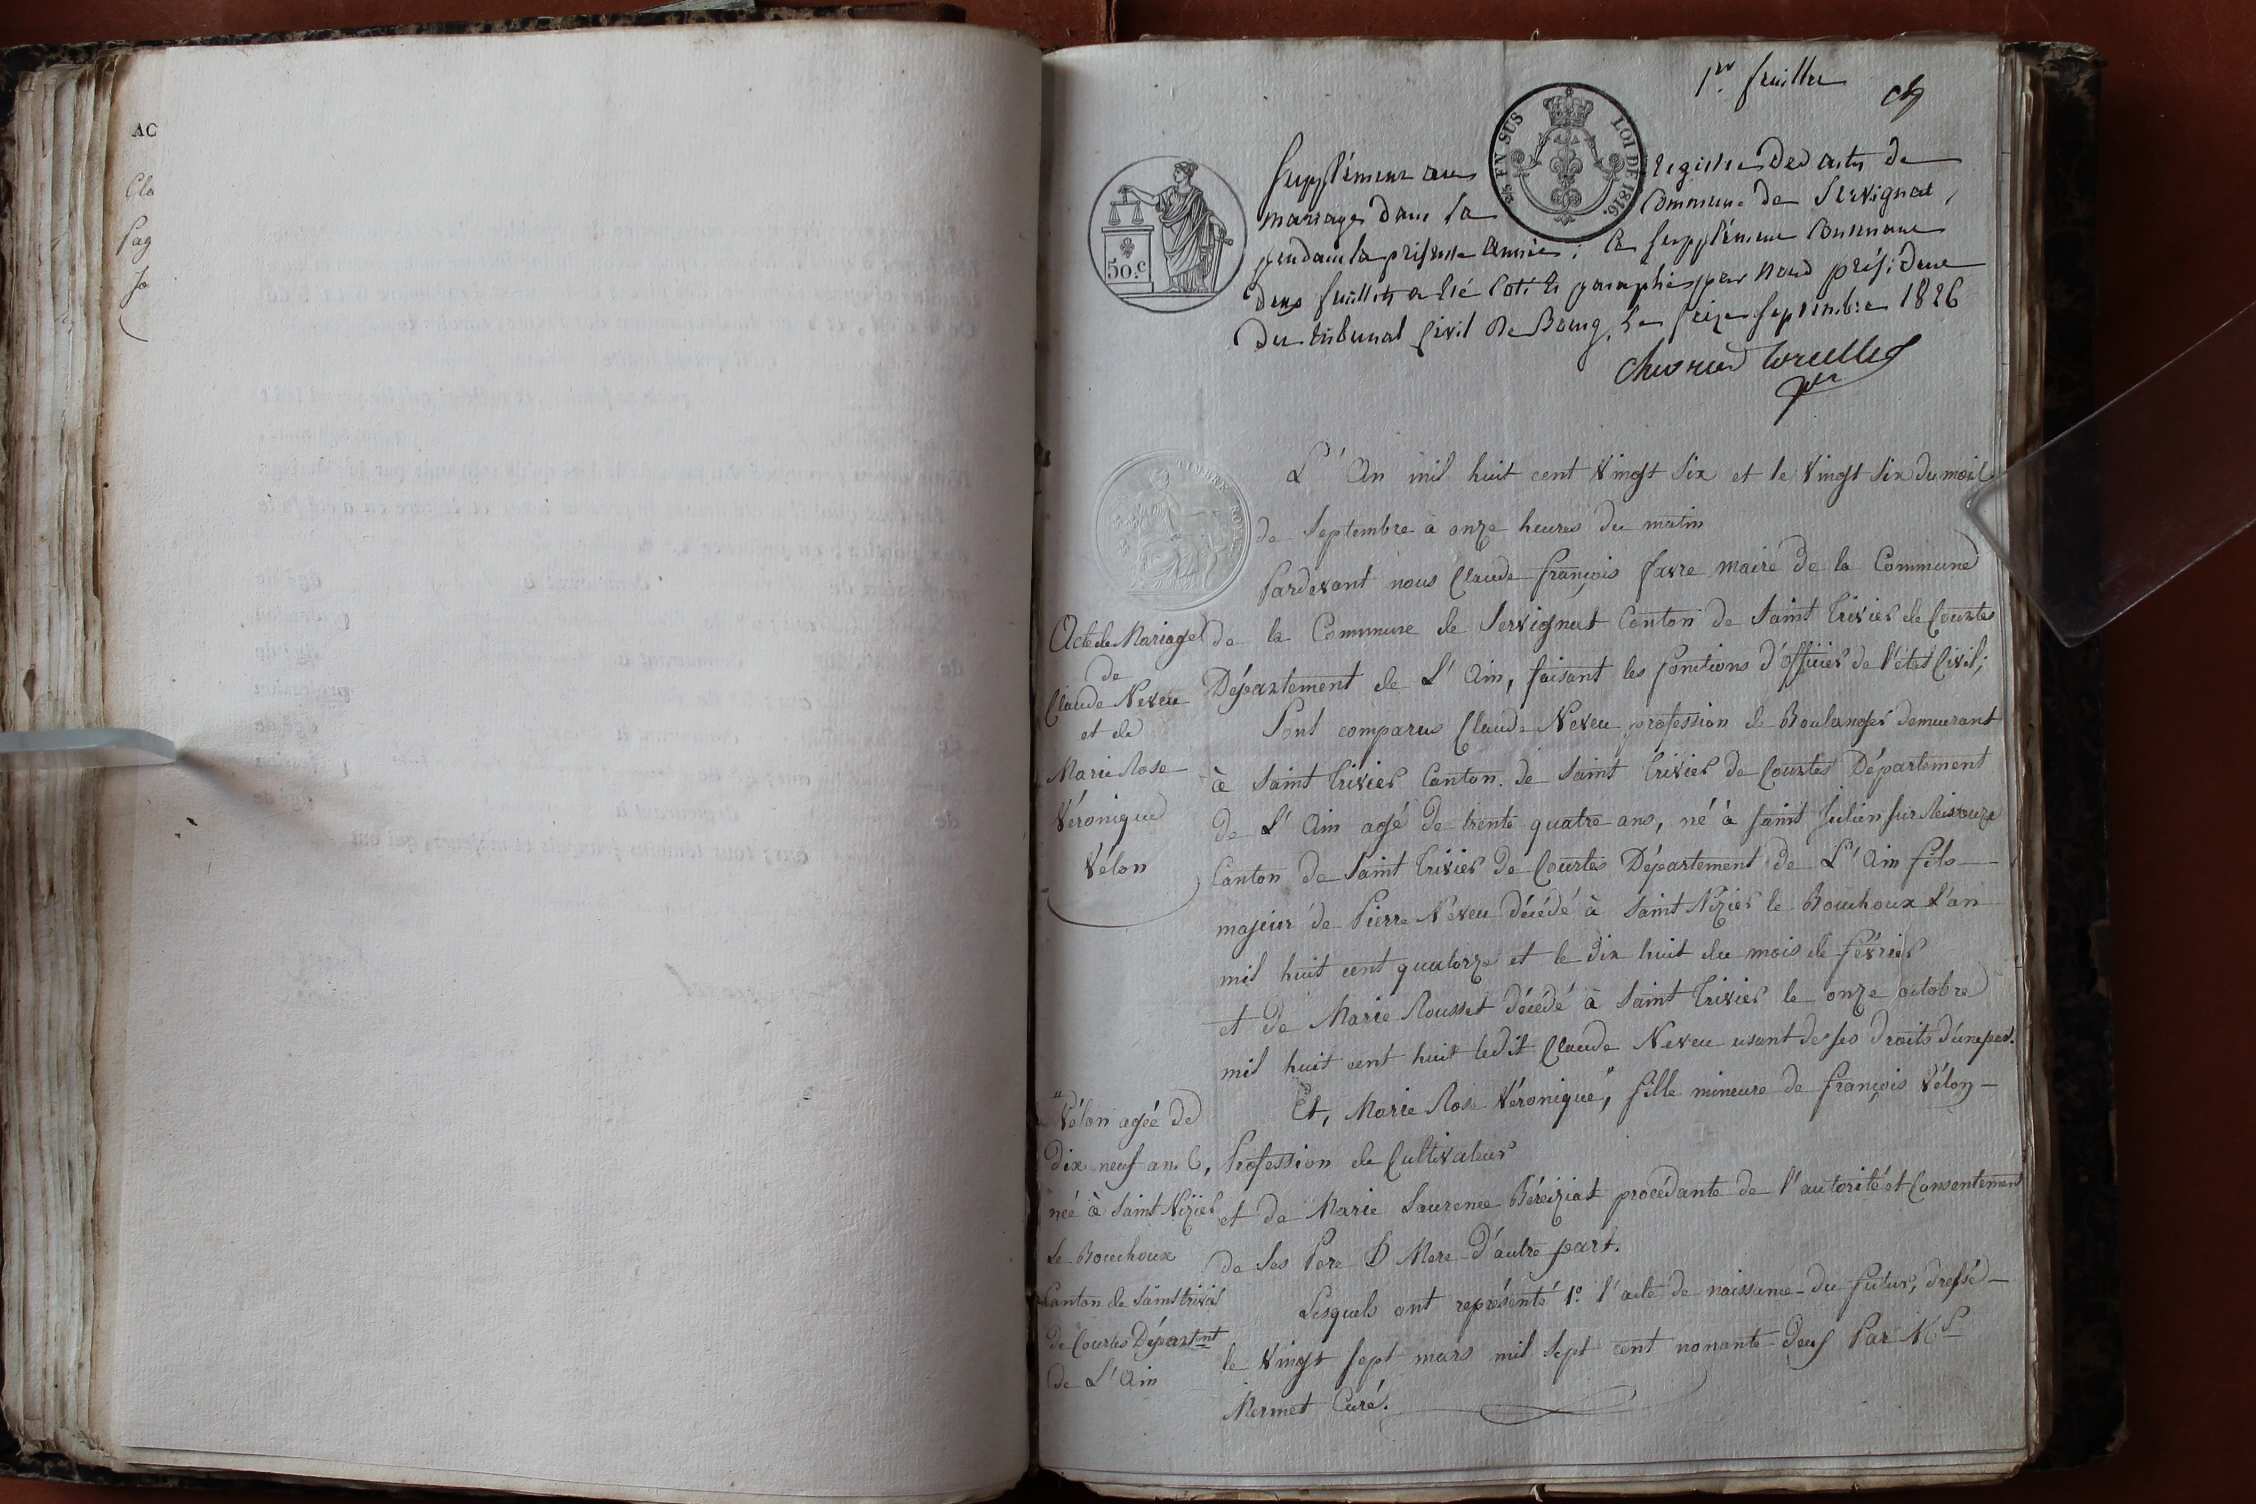 AC
Cla
Pag
1er feuillet
EN SUS
LOI DE 1816.
50.c
Supplément au registre des actes de
mariage dans la Commune de Servignat,
pendant la présente année; ce supplément contenant
deux feuillets a été coté & paraphé par nous président
du tribunal civil de Bourg, le seize septembre 1826
TIMBRE ROYAL
L'An mil huit cent vingt six et le vingt six du mois
de Septembre à onze heures du matin
Pardevant nous Claude françois favre maire de la Commune
de la Commune de Servignat Canton de Saint Trivier de Courtes
Département de L'Ain, faisant les fonctions d'officier de l'état Civil;
Sont comparus Claude Neveu profession de Boulanger demeurant
à Saint Trivier Canton de Saint Trivier de Courtes Département
de L'Ain agé de trente quatre ans, né à Saint Julien sur Reissouze
Canton de Saint Trivier de Courtes Département de L'Ain fils
majeur de Pierre Neveu décédé à Saint Nizier le Bouchoux L'an
mil huit cent quatorze et le dix huit du mois de février
et de Marie Rousset décédé à Saint Trivier le onze octobre
mil huit cent huit ledit Claude Neveu usant de ses droits d'une part.
Et, Marie Rose Véronique", fille mineure de françois Vélon
Profession de Cultivateur
et de Marie Laurence Béréiziat procédante de l'autorité et Consentement
de Ses Pere & Mere d'autre part.
Lesquels ont représenté 1º l'acte de naissance du futur, dressé
le Vingt sept mars mil sept cent nonante deux Par
Mermet Curé.
Acte de Mariage
de
Claude Neveu
et de
Marie Rose
Véronique
Vélon
" Vélon agée de
dix neuf ans
née à Saint Nizier
Le Bouchoux
Canton de Saint trivier
de Courtes Départnt
de L'Ain